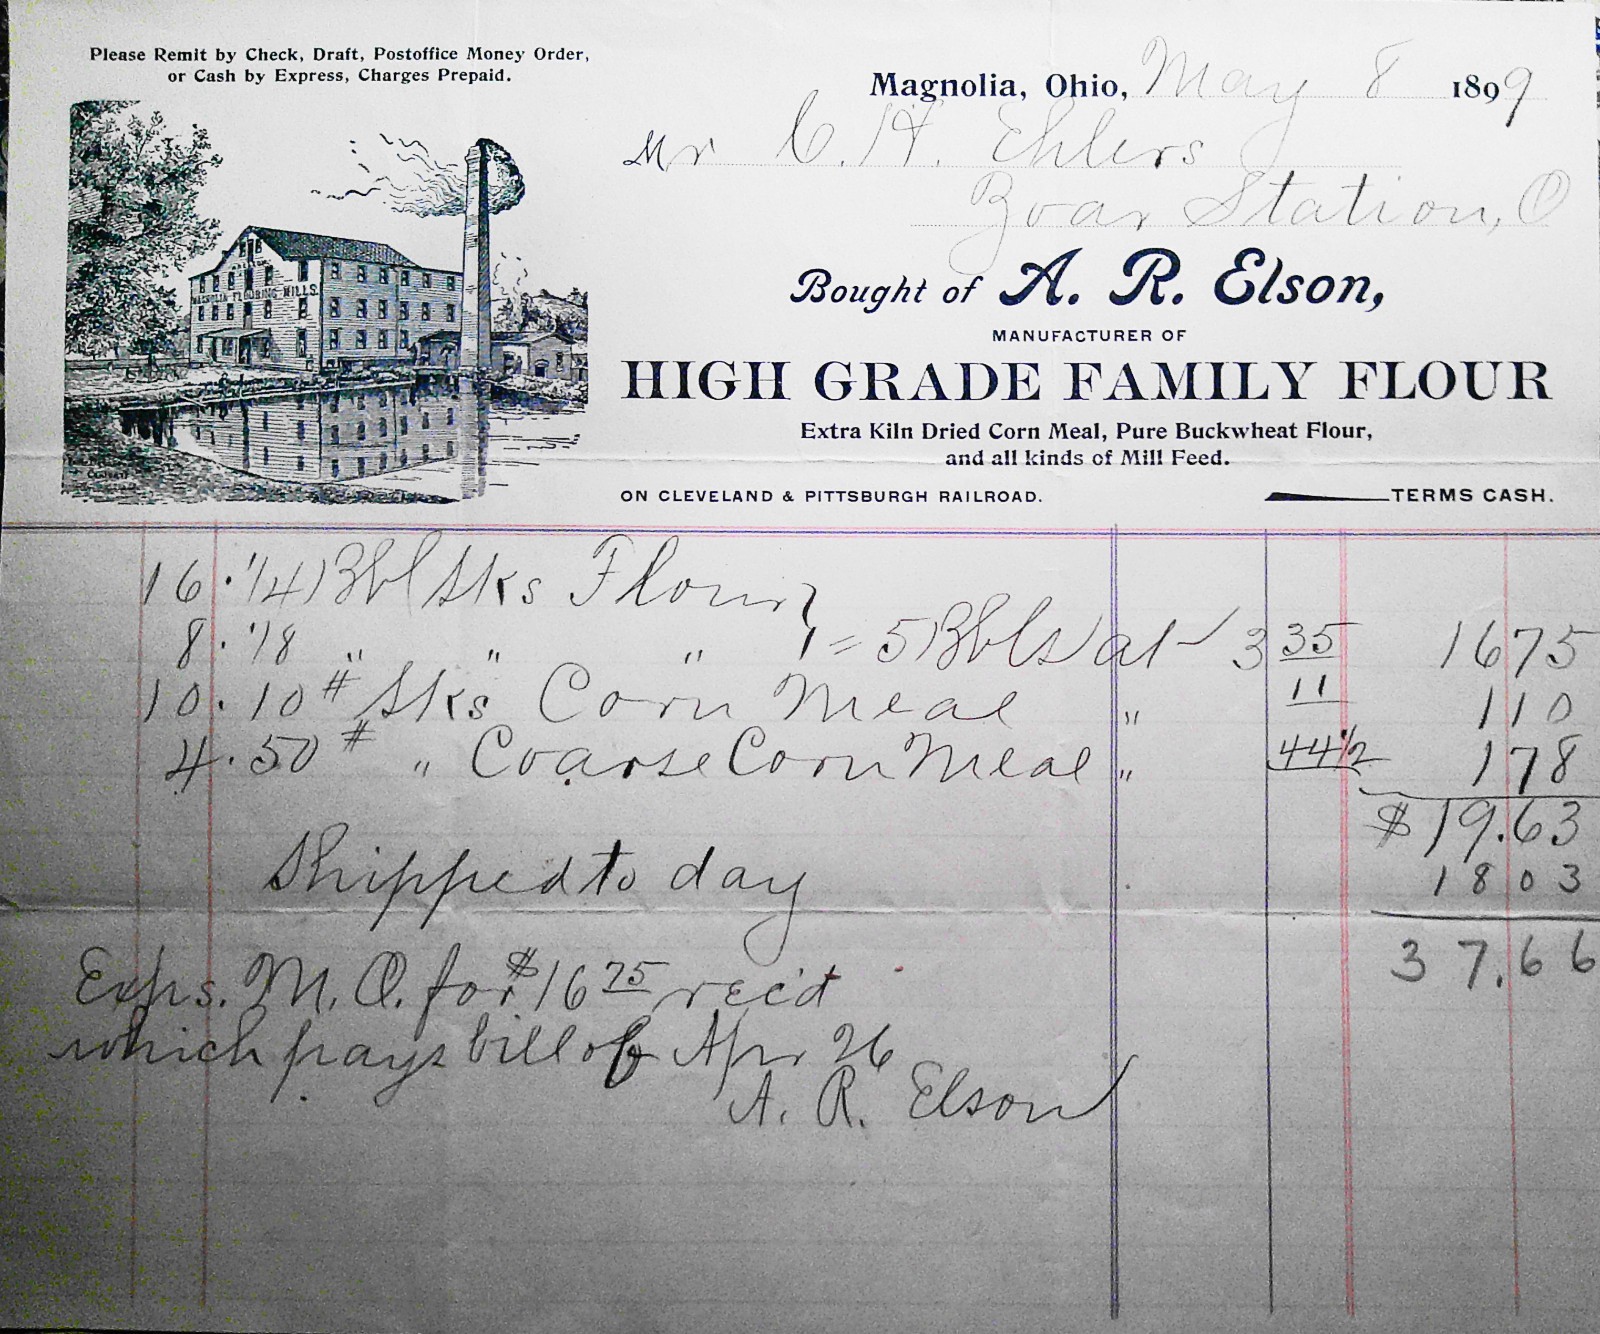 Please Remit by Check, Draft, Postoffice Money Order,
or Cash by Express, Charges Prepaid.
Magnolia, Ohio, May 8 1899
Mr C. H. Ehlers
Zoar Station, O
Bought of A. R. Elson,
MANUFACTURER OF
HIGH GRADE FAMILY FLOUR
Extra Kiln Dried Corn Meal, Pure Buckwheat Flour,
and all kinds of Mill Feed.
ON CLEVELAND & PITTSBURGH RAILROAD. TERMS CASH.
MAGNOLIA FLOURING MILLS.
16 · 1/4 Bbl Sks Flour
8 · 1/8 " " " } = 5 Bbls at 3 35 1675
10 · 10 # Sks Corn Meal " 11 110
4 · 50 # " Coarse Corn Meal " 44 1/2 178
$ 19.63
Shipped to day 1803
37.66
Exps. M. O. for $16 75 rec'd
which pays bill of Apr 26
A. R. Elson